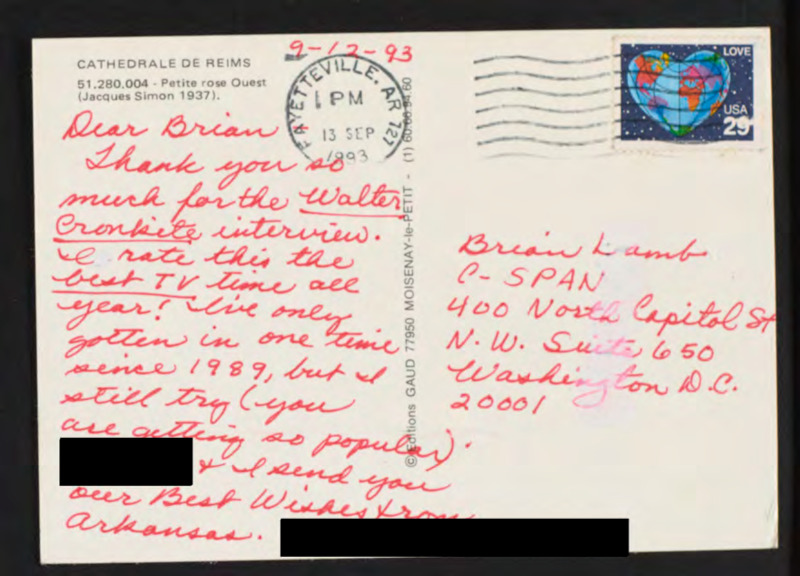 CATHEDRALE DE REIMS
51.280.004 - Petite rose Ouest
(Jacques Simon 1937).
9-12-93
FAYETTEVILLE, AR 727
1 PM
13 SEP
1993
LOVE
USA
29
Dear Brian
Thank you so
much for the Walter
Cronkite interview.
I rate this the
best TV time all
year! I've only
gotten in one time
since 1989, but I
still try (you
are getting so popular).
& I send you
our Best Wishes from
Arkansas.
© Editions GAUD 77950 MOISENAY-le-PETIT - (1) 60.66.94.60
Brian Lamb
C-SPAN
400 North Capitol St
N.W. Suite 650
Washington D.C.
20001